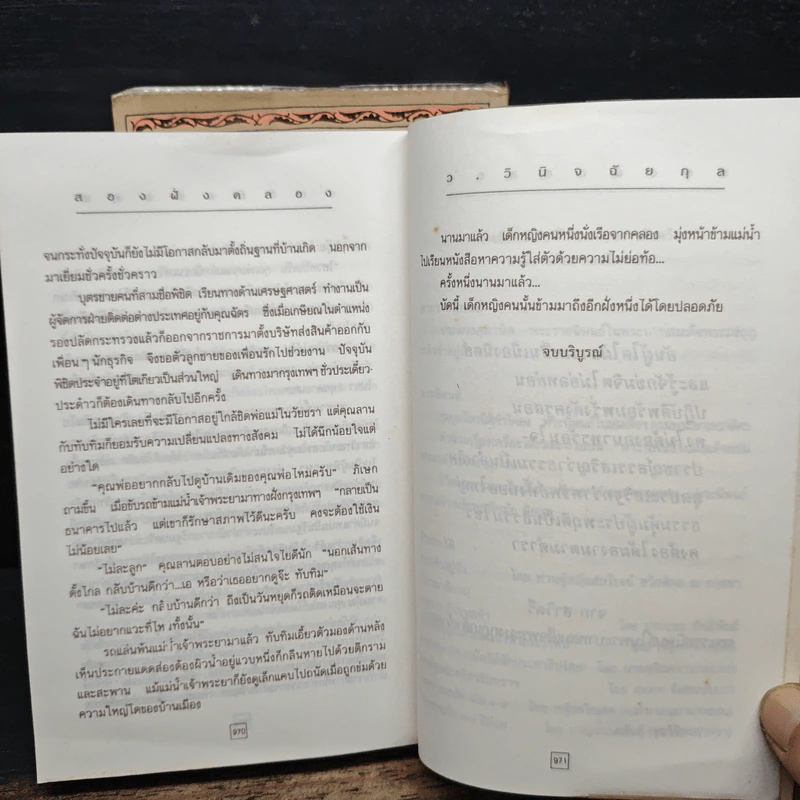 สองฝั่งคลอง
จนกระทั่งปัจจุบันก็ยังไม่มีโอกาสกลับมาตั้งถิ่นฐานที่บ้านเกิด นอกจาก
มาเยี่ยมชั่วครั้งชั่วคราว
บุตรชายคนที่สามชื่อพิชิต เรียนทางด้านเศรษฐศาสตร์ ทำงานเป็น
ผู้จัดการฝ่ายติดต่อต่างประเทศอยู่กับคุณฉัตร ซึ่งเมื่อเกษียณในตำแหน่ง
รองปลัดกระทรวงแล้วก็ออกจากราชการมาตั้งบริษัทส่งสินค้าออกกับ
เพื่อนๆ นักธุรกิจ จึงขอตัวลูกชายของเพื่อนรักไปช่วยงาน ปัจจุบัน
พิชิตประจำอยู่ที่โตเกียวเป็นส่วนใหญ่ เดินทางมากรุงเทพฯ ชั่วประเดี๋ยว-
ประด๋าวก็ต้องเดินทางกลับไปอีกครั้ง
ไม่มีใครเลยที่จะมีโอกาสอยู่ใกล้ชิดพ่อแม่ในวัยชรา แต่คุณลาน
กับทับทิมก็ยอมรับความเปลี่ยนแปลงทางสังคม ไม่ได้นึกน้อยใจแต่
อย่างใด
"คุณพ่ออยากกลับไปดูบ้านเดิมของคุณพ่อไหมครับ" ภิเษก
ถามขึ้น เมื่อขับรถข้ามแม่น้ำเจ้าพระยามาทางฝั่งกรุงเทพฯ "กลายเป็น
ธนาคารไปแล้ว แต่เขาก็รักษาสภาพไว้ดีนะครับ คงจะต้องใช้เงิน
ไม่น้อยเลย"
"ไม่ละลูก" คุณลานตอบอย่างไม่สนใจไยดีนัก "นอกเส้นทาง
ตั้งไกล กลับบ้านดีกว่า...เอ หรือว่าเธออยากดูจ๊ะ ทับทิม"
"ไม่ละค่ะ กลับบ้านดีกว่า ถึงเป็นวันหยุดก็รถติดเหมือนจะตาย
ฉันไม่อยากแวะที่ไหนทั้งนั้น"
รถแล่นพ้นแม่น้ำเจ้าพระยามาแล้ว ทับทิมเอี้ยวตัวมองด้านหลัง
เห็นประกายแดดส่องต้องผิวน้ำอยู่แวบหนึ่งก็กลืนหายไปด้วยตึกราม
และสะพาน แม้แม่น้ำเจ้าพระยาก็ยังดูเล็กแคบไปถนัดเมื่อถูกข่มด้วย
ความใหญ่โตของบ้านเมือง
970
ว.วินิจฉัยกุล
นานมาแล้ว เด็กหญิงคนหนึ่งนั่งเรือจากคลอง มุ่งหน้าข้ามแม่น้ำ
ไปเรียนหนังสือหาความรู้ใส่ตัวด้วยความไม่ย่อท้อ...
ครั้งหนึ่งนานมาแล้ว...
บัดนี้ เด็กหญิงคนนั้นข้ามมาถึงอีกฝั่งหนึ่งได้โดยปลอดภัย
จบบริบูรณ์
971